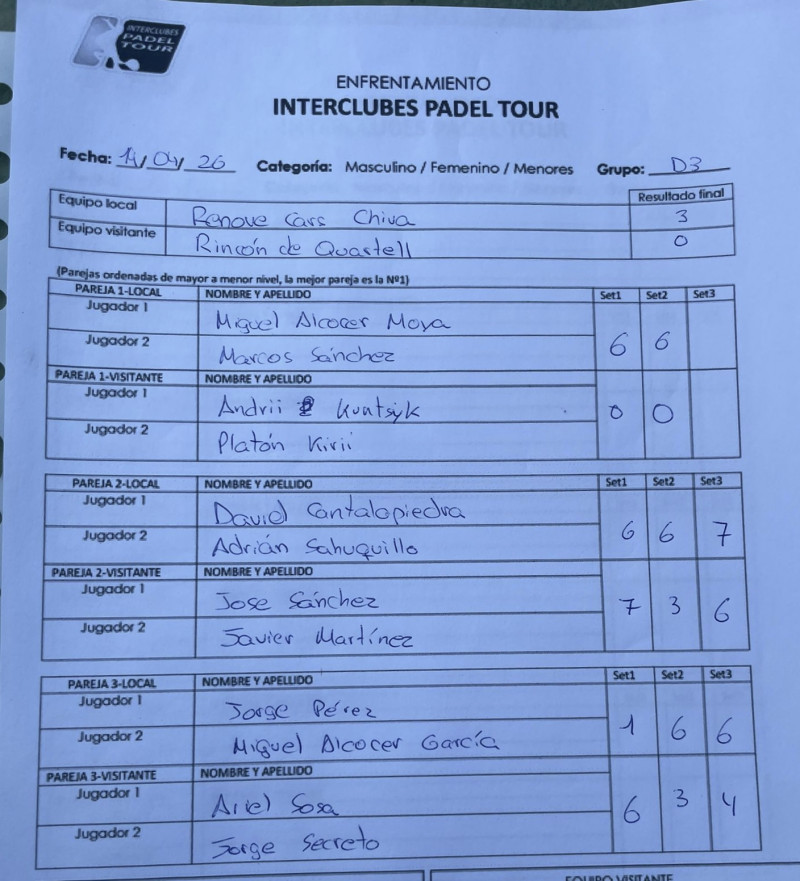 INTERCLUBES
PADEL
TOUR
ENFRENTAMIENTO
INTERCLUBES PADEL TOUR
Fecha: 14/04/26 Categoría: Masculino / Femenino / Menores Grupo: D3
Resultado final
Equipo local Renove Cars Chiva 3
Equipo visitante Rincón de Quartell 0
(Parejas ordenadas de mayor a menor nivel, la mejor pareja es la Nº1)
PAREJA 1-LOCAL NOMBRE Y APELLIDO Set1 Set2 Set3
Jugador 1 Miguel Alcocer Moya
Jugador 2 Marcos Sánchez 6 6
PAREJA 1-VISITANTE NOMBRE Y APELLIDO
Jugador 1 Andrii Kuntsyk 0 0
Jugador 2 Platón Kirii
PAREJA 2-LOCAL NOMBRE Y APELLIDO Set1 Set2 Set3
Jugador 1 David Cantalapiedra
Jugador 2 Adrián Sahuquillo 6 6 7
PAREJA 2-VISITANTE NOMBRE Y APELLIDO
Jugador 1 Jose Sánchez 7 3 6
Jugador 2 Javier Martínez
PAREJA 3-LOCAL NOMBRE Y APELLIDO Set1 Set2 Set3
Jugador 1 Jorge Pérez
Jugador 2 Miguel Alcocer García 1 6 6
PAREJA 3-VISITANTE NOMBRE Y APELLIDO
Jugador 1 Ariel Sosa 6 3 4
Jugador 2 Jorge Secreto
EQUIPO VISITANTE